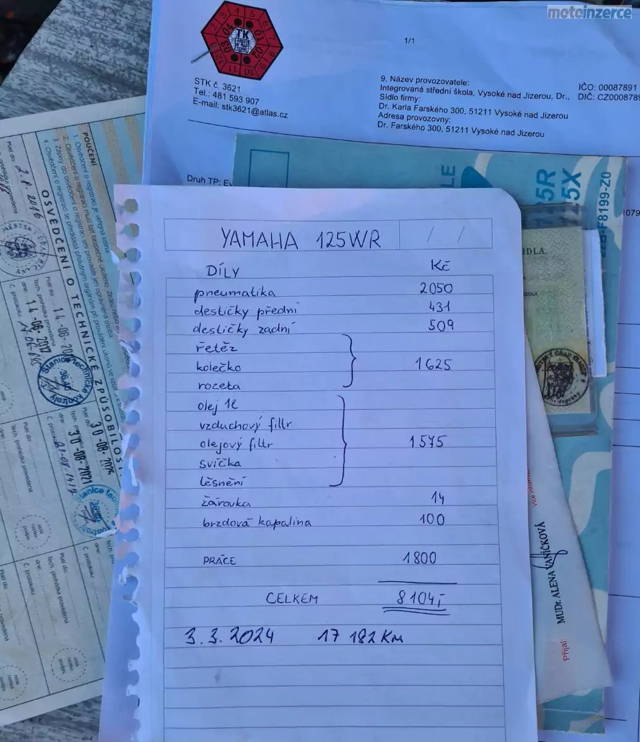 motoinzerce
1/1
TK
STK č. 3621
Tel.: 481 593 907
E-mail: stk3621@atlas.cz
9. Název provozovatele:
Integrovaná střední škola, Vysoké nad Jizerou, Dr.,
Sídlo firmy:
Dr. Karla Farského 300, 51211 Vysoké nad Jizerou
Adresa provozovny:
Dr. Farského 300, 51211 Vysoké nad Jizerou
IČO: 00087891
DIČ: CZ000878
Druh TP:
POUČENÍ
OSVĚDČENÍ O TECHNICKÉ ZPŮSOBILOSTI
YAMAHA 125WR / /
DÍLY Kč
pneumatika 2050
destičky přední 431
destičky zadní 509
řetěz
kolečko 1625
rozeta
olej 1l
vzduchový filtr
olejový filtr 1575
svíčka
těsnění
žárovka 14
brzdová kapalina 100
PRÁCE 1800
CELKEM 8104,-
3.3.2024 17 182 KM
5R
5X
F8199-Z0
IDLA.
MUDr. ALENA VANÍČKOVÁ
Přijal
30-08-2021